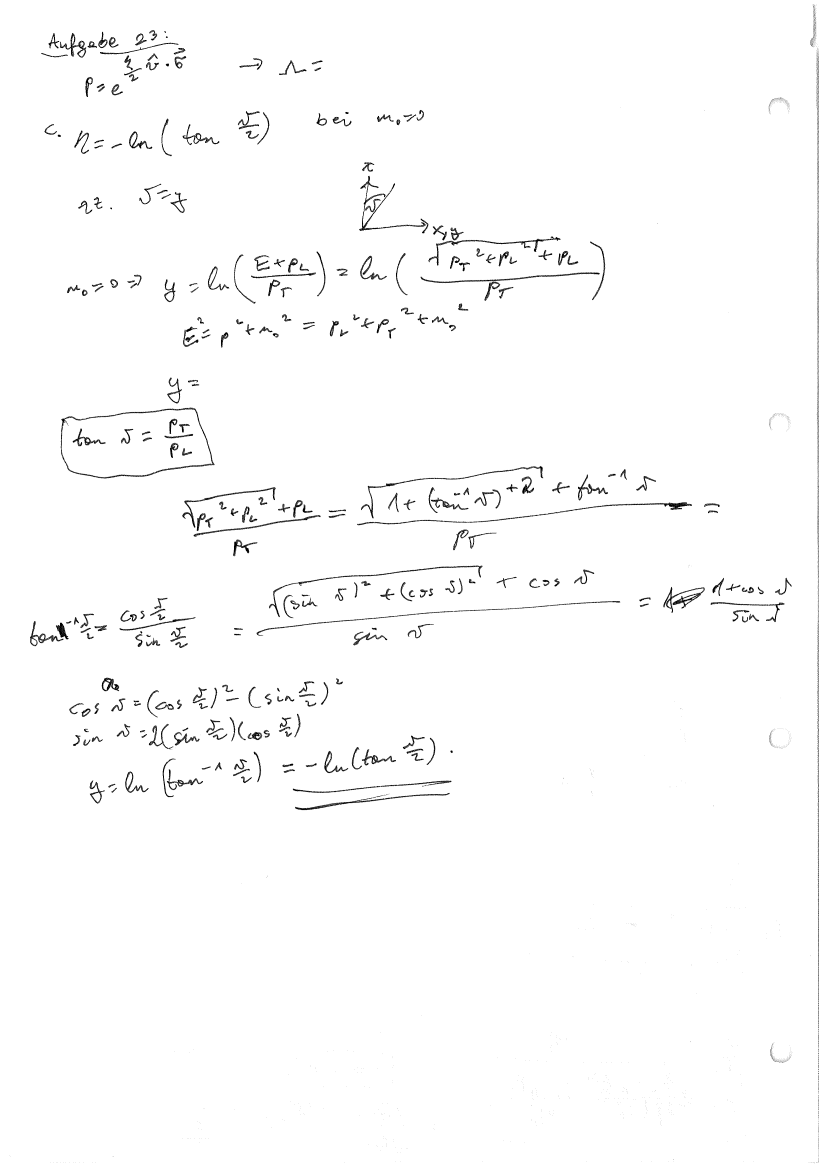 Aufgabe 23:
P = e^{ξ/2 v̂·σ⃗} → Λ =
c. η = -ln(tan ϑ/2) bei m₀=0
qz. ϑ=y
z
ϑ
x,y
m₀=0 ⇒ y = ln((E+p_L)/p_T) = ln((√(p_T²+p_L²)+p_L)/p_T)
E² = p²+m₀² = p_L²+p_T²+m₀²
y =
tan ϑ = p_T/p_L
(√(p_T²+p_L²)+p_L)/p_T = (√(1+(tan⁻¹ϑ)^{+2})+tan⁻¹ϑ)/p_T =
tan⁻¹ ϑ/2 = (cos ϑ/2)/(sin ϑ/2) = (√((sin ϑ)²+(cos ϑ)²) + cos ϑ)/(sin ϑ) = (1+cos ϑ)/(sin ϑ)
cos ϑ = (cos ϑ/2)² - (sin ϑ/2)²
sin ϑ = 2(sin ϑ/2)(cos ϑ/2)
y = ln(tan⁻¹ ϑ/2) = -ln(tan ϑ/2).